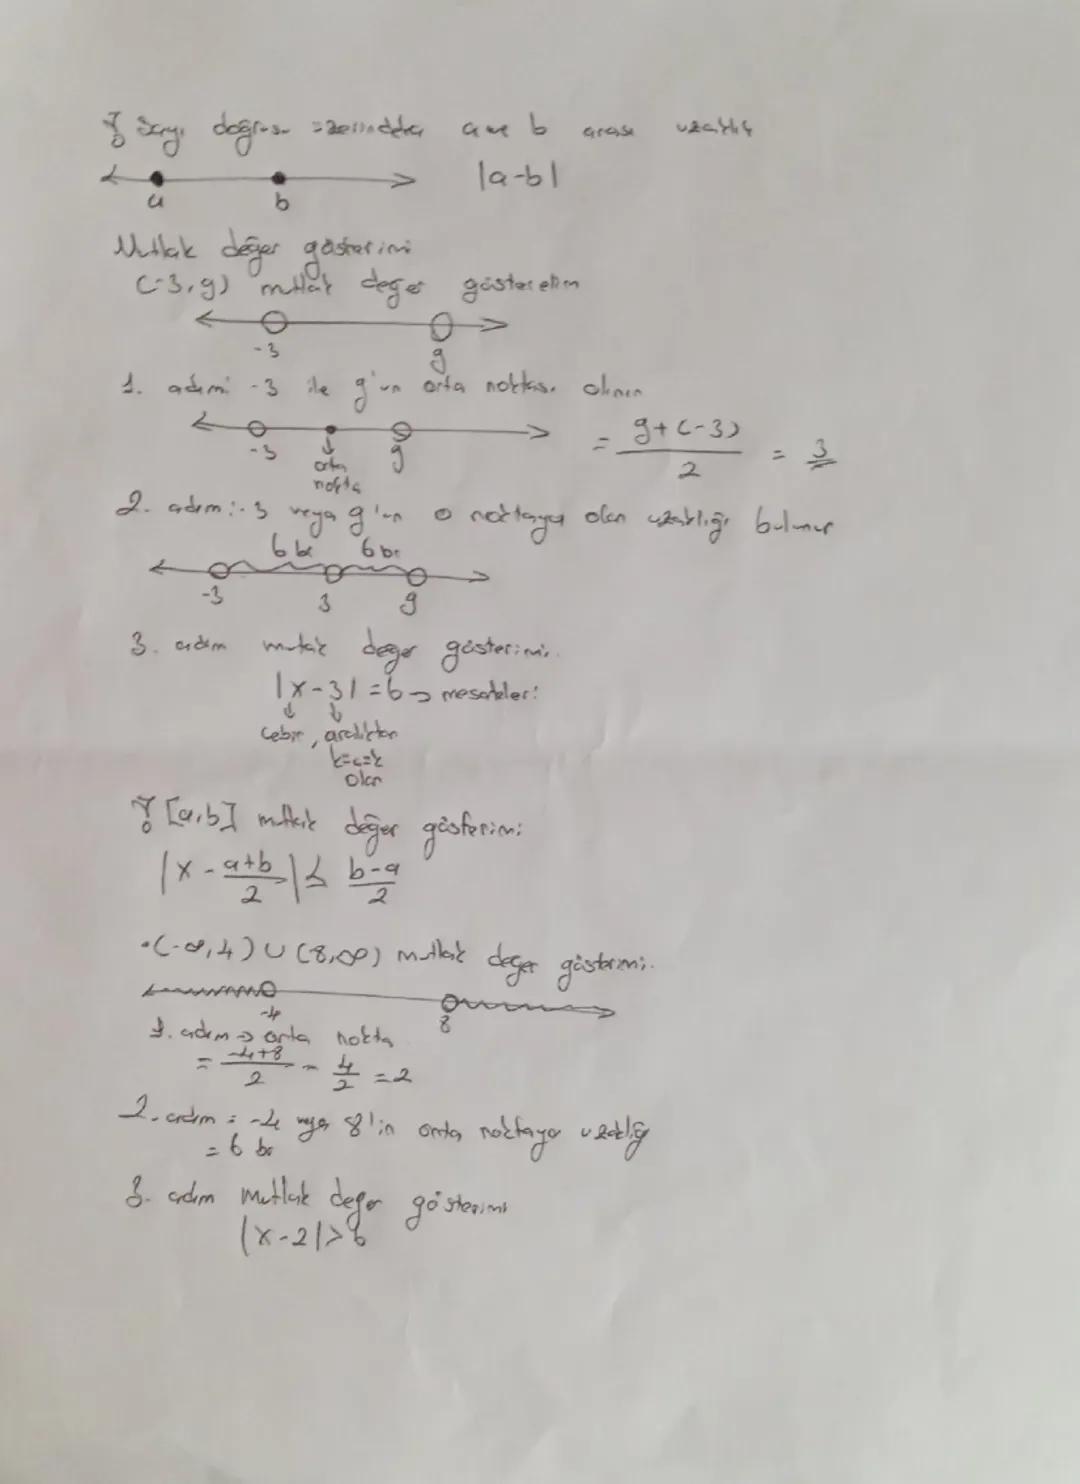 Sayı doğrusu üzerindeki a ve b arası uzaklık
|a-b|
a b
Mutlak değer gösterimi
(-3,9) mutlak değer gösterelim
-3 9
1. adım: -3 ile 9'un orta noktası alınır
-3 orta nokta 9
= 9+(-3) / 2 = 3
2. adım: -3 veya 9'un o noktaya olan uzaklığı bulunur
6 br 6 br
-3 3 9
3. adım mutlak değer gösterimi.
|x-3| = 6 →
cebir, aralıktan
olan
[a,b] mutlak değer gösterimi
|x - a+b / 2| ≤ b-a / 2
• (-∞,4) ∪ (8,∞) mutlak değer gösterimi.
-4 8
1. adım → orta nokta
= -4+8 / 2 = 4 / 2 = 2
2. adım = -4 veya 8'in orta noktaya uzaklığı
= 6 br
3. adım Mutlak değer gösterimi
|x-2| > 6